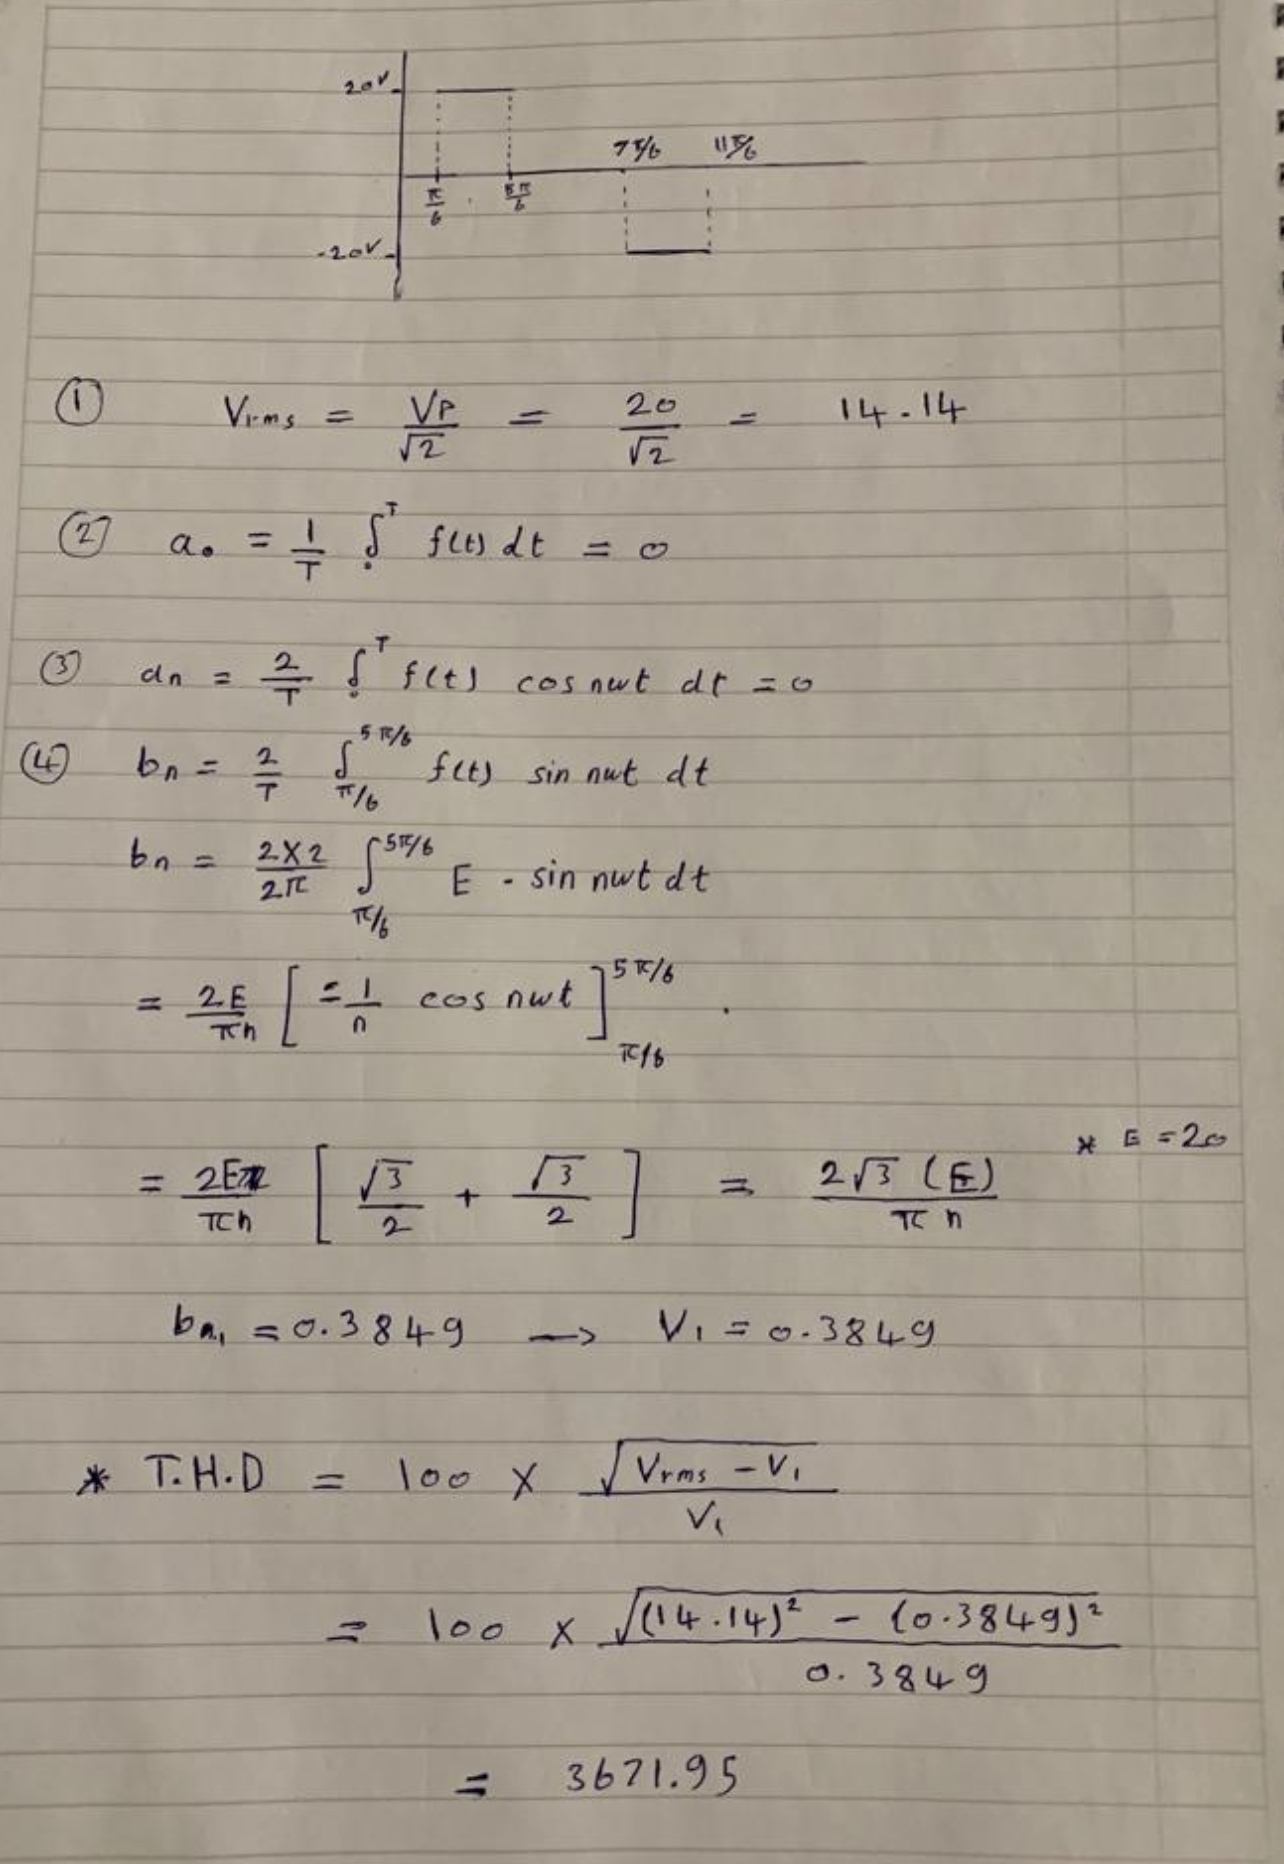 20V
7π/6 11π/6
π/6 5π/6
-20V
① Vrms = VP/√2 = 20/√2 = 14.14
② a₀ = 1/T ∫₀ᵀ f(t) dt = 0
③ an = 2/T ∫₀ᵀ f(t) cos nwt dt = 0
④ bn = 2/T ∫_{π/6}^{5π/6} f(t) sin nwt dt
bn = 2X2/2π ∫_{π/6}^{5π/6} E . sin nwt dt
= 2E/πn [ -1/n cos nwt ]_{π/6}^{5π/6} .
* E = 20
= 2E/πn [ √3/2 + √3/2 ] = 2√3 (E)/π n
bn₁ = 0.3849 → V₁ = 0.3849
* T.H.D = 100 X √(Vrms - V₁)/V₁
= 100 X √((14.14)² - (0.3849)²)/0.3849
= 3671.95